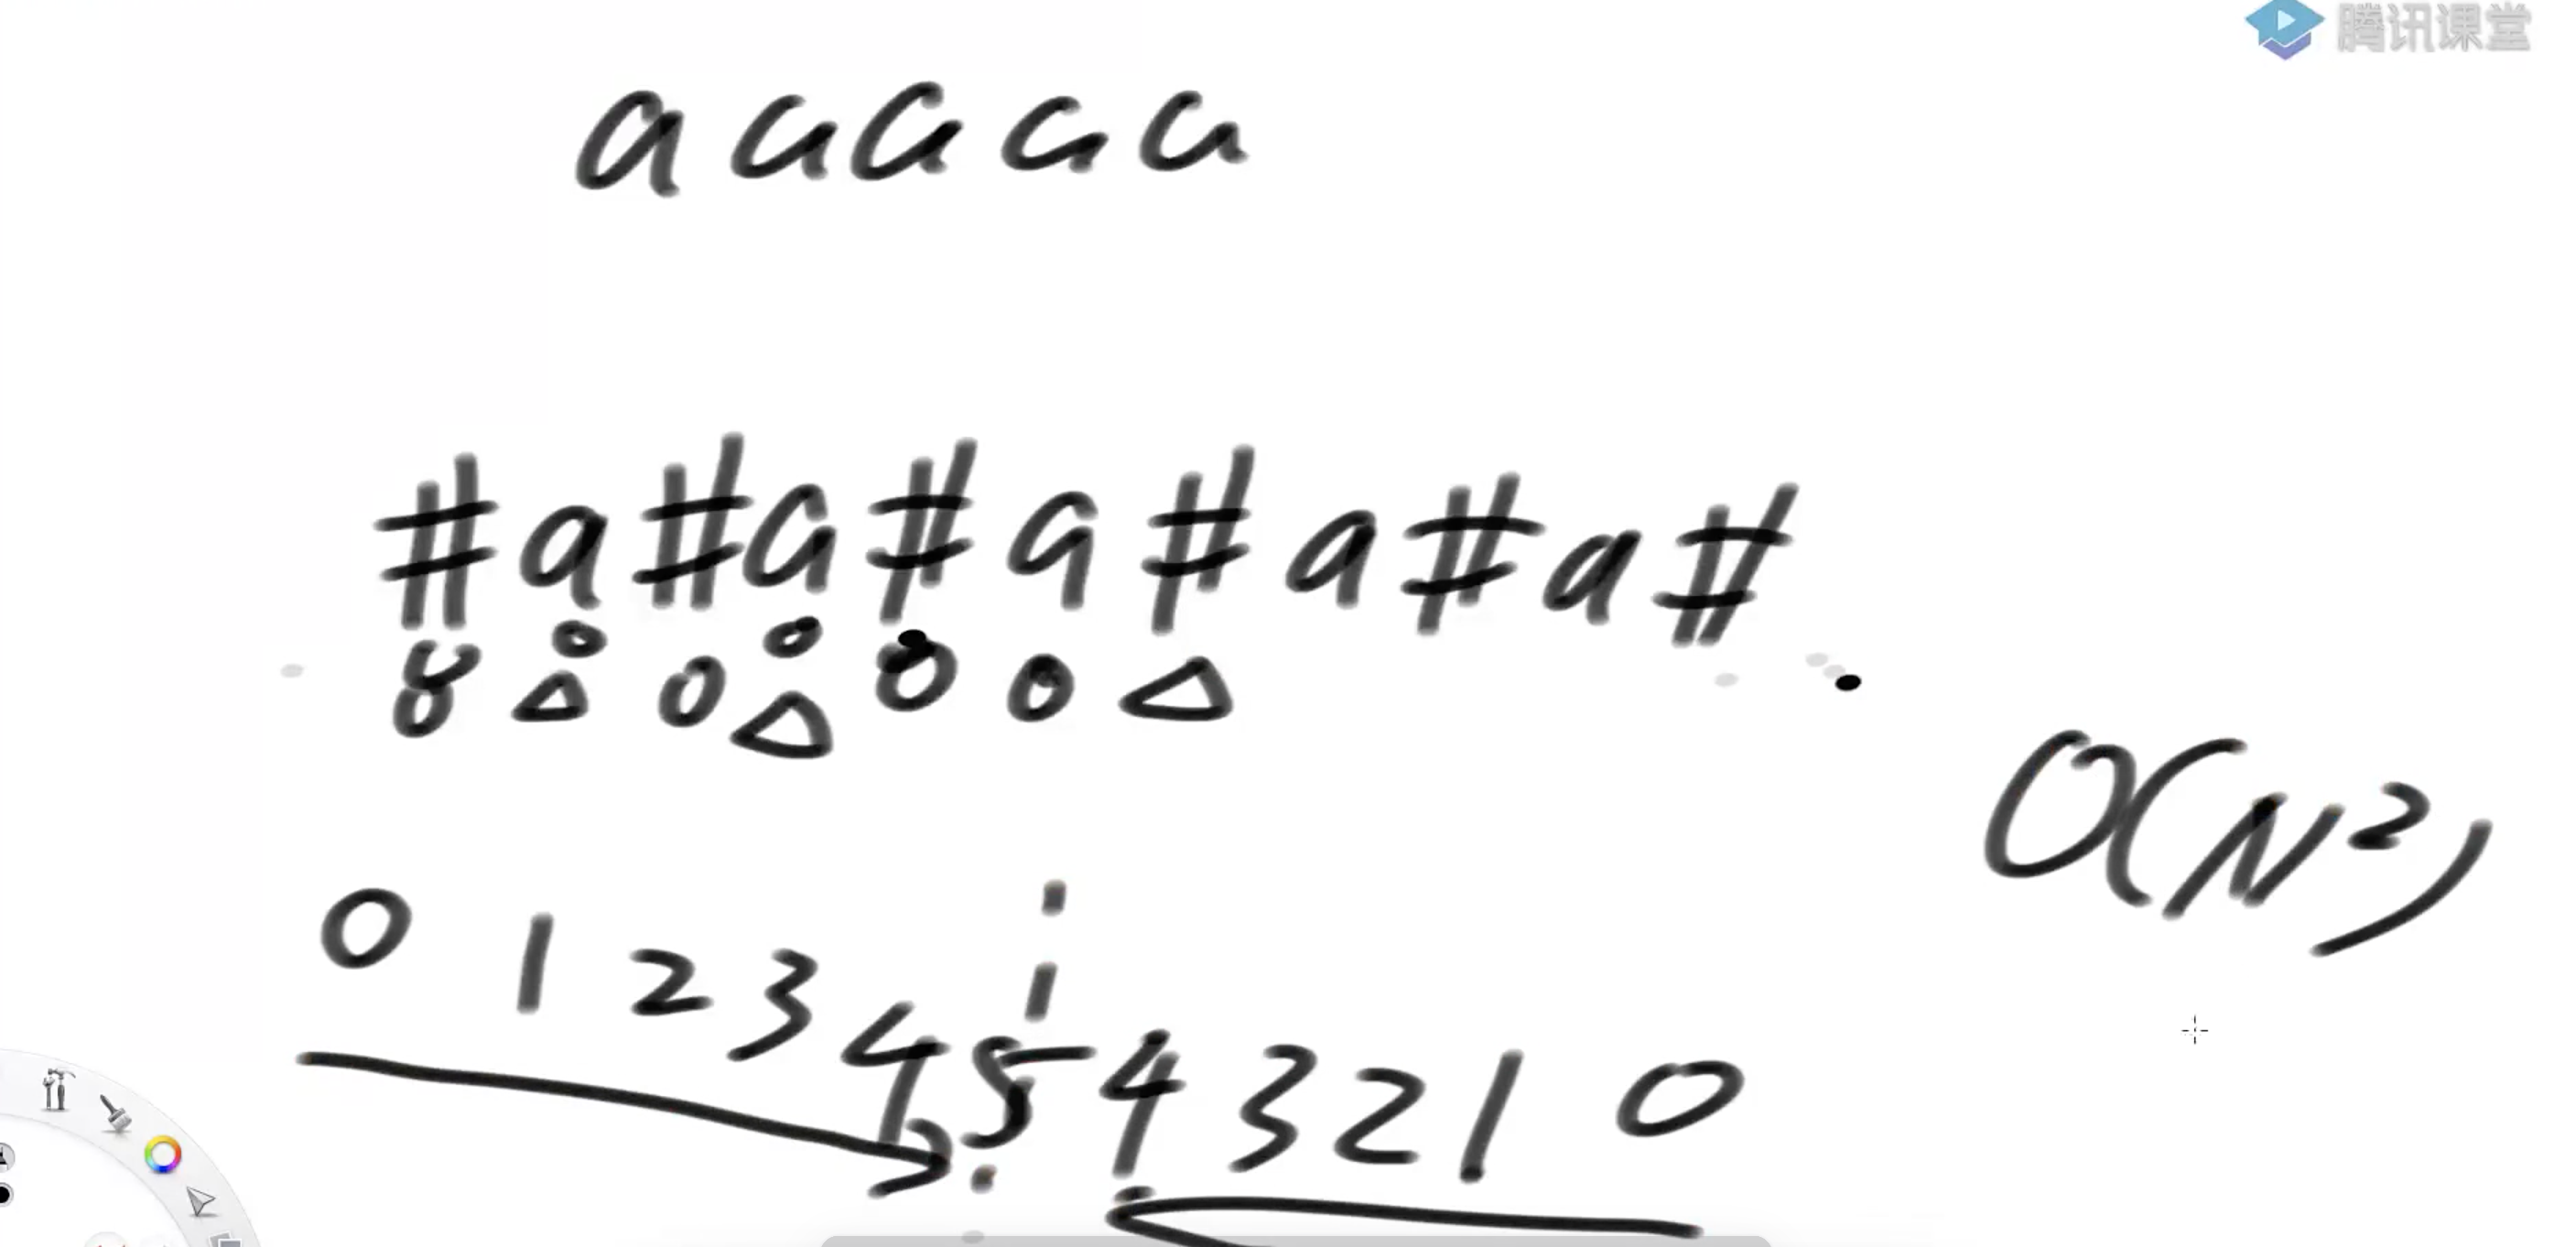 腾讯课堂
a a a a a
# a # a # a # a # a #
O(N²)
0 1 2 3 4 5 4 3 2 1 0